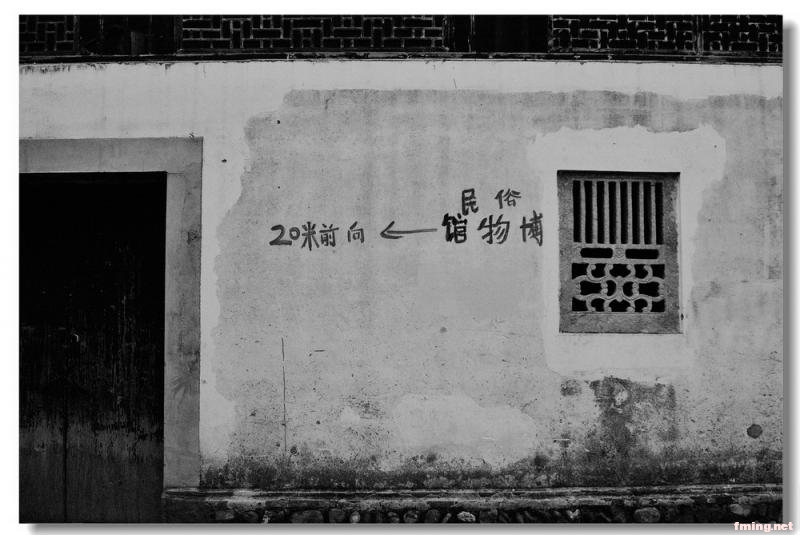 民俗
博物馆←向前20米
fming.net